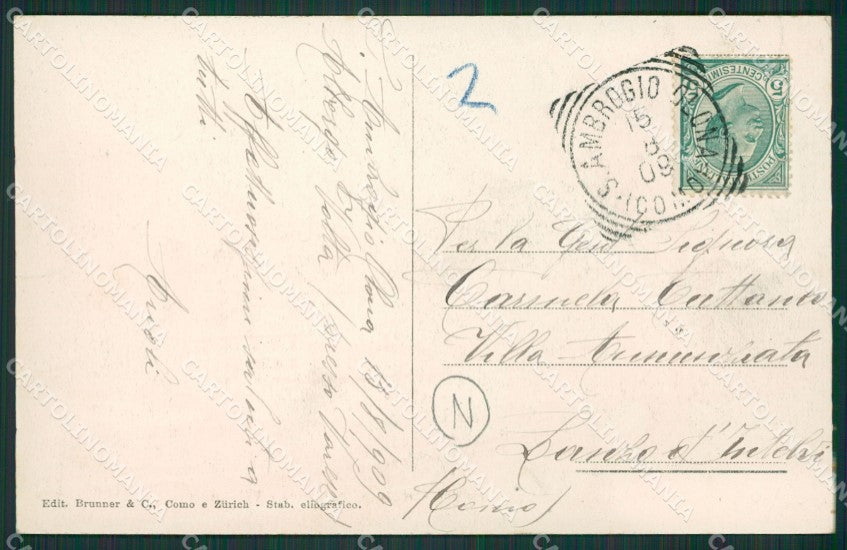 2
S. AMBROGIO OLONA
15
8
09
(COMO)
CENTESIMI
5
POSTE
S. Ambrogio Olona 15/8/909
Albergo
Affettuosissimi saluti a
tutti
Per la Gen Signora
Carmela Cattaneo
Villa Annunziata
Lanzo d'Intelvi
(Como)
N
Edit. Brunner & C., Como e Zürich - Stab. eliografico.
CARTOLINOMANIA